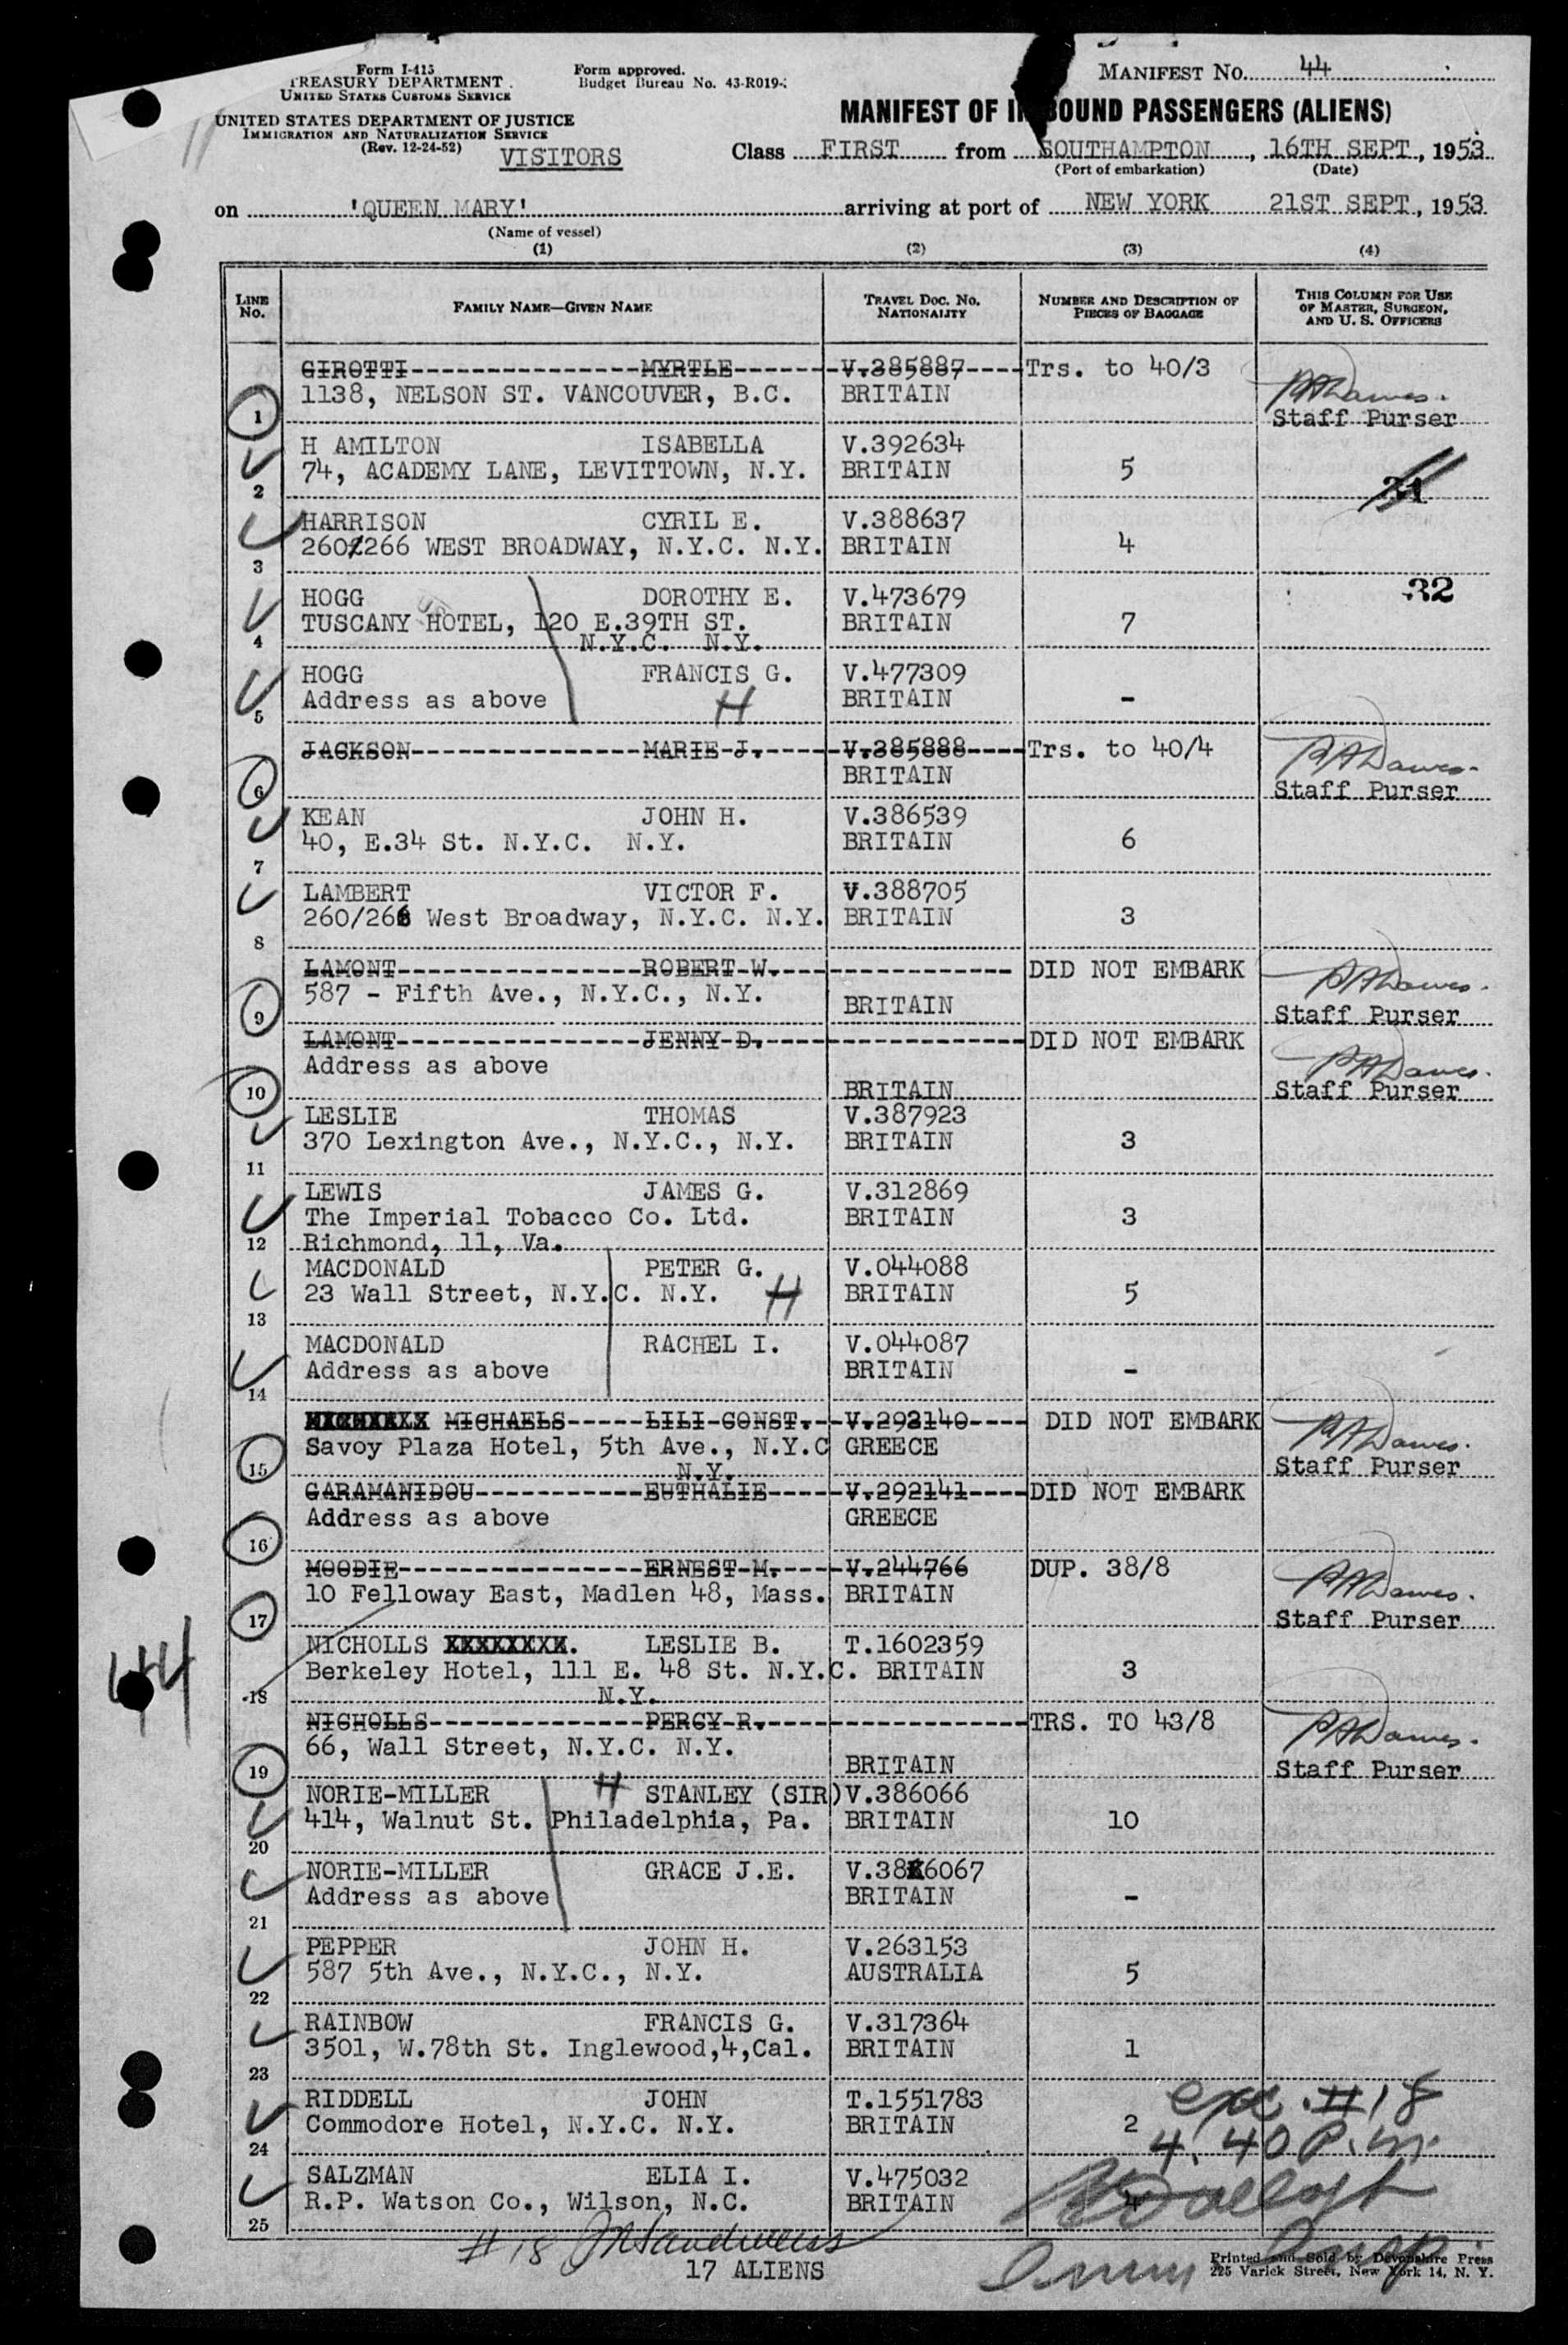 Form I-415
TREASURY DEPARTMENT
UNITED STATES CUSTOMS SERVICE
UNITED STATES DEPARTMENT OF JUSTICE
IMMIGRATION AND NATURALIZATION SERVICE
(Rev. 12-24-52)
VISITORS
Form approved.
Budget Bureau No. 43-R019-
MANIFEST No. 44
MANIFEST OF INBOUND PASSENGERS (ALIENS)
Class FIRST from SOUTHAMPTON, 16TH SEPT, 1953
(Port of embarkation) (Date)
on 'QUEEN MARY' arriving at port of NEW YORK 21ST SEPT, 1953
(Name of vessel)
(1) (2) (3) (4)
LINE No. FAMILY NAME—GIVEN NAME TRAVEL DOC. NO. NATIONALITY NUMBER AND DESCRIPTION OF PIECES OF BAGGAGE THIS COLUMN FOR USE OF MASTER, SURGEON, AND U. S. OFFICERS
GIROTTI MYRTLE V.385887 Trs. to 40/3
1138, NELSON ST. VANCOUVER, B.C. BRITAIN
1 Staff Purser
H AMILTON ISABELLA V.392634
74, ACADEMY LANE, LEVITTOWN, N.Y. BRITAIN 5
2 31
HARRISON CYRIL E. V.388637
260/266 WEST BROADWAY, N.Y.C. N.Y. BRITAIN 4
3
32
HOGG DOROTHY E. V.473679
TUSCANY HOTEL, 120 E.39TH ST. BRITAIN 7
4 N.Y.C. N.Y.
HOGG FRANCIS G. V.477309
Address as above H BRITAIN -
5
JACKSON MARIE J. V.385888 Trs. to 40/4
BRITAIN
6 Staff Purser
KEAN JOHN H. V.386539
40, E.34 St. N.Y.C. N.Y. BRITAIN 6
7
LAMBERT VICTOR F. V.388705
260/266 West Broadway, N.Y.C. N.Y. BRITAIN 3
8
LAMONT ROBERT W. DID NOT EMBARK
587 - Fifth Ave., N.Y.C., N.Y. BRITAIN
9 Staff Purser
LAMONT JENNY D. DID NOT EMBARK
Address as above
10 BRITAIN Staff Purser
LESLIE THOMAS V.387923
370 Lexington Ave., N.Y.C., N.Y. BRITAIN 3
11
LEWIS JAMES G. V.312869
The Imperial Tobacco Co. Ltd. BRITAIN 3
12 Richmond, 11, Va.
MACDONALD PETER G. V.044088
23 Wall Street, N.Y.C. N.Y. H BRITAIN 5
13
MACDONALD RACHEL I. V.044087
Address as above BRITAIN -
14
MICHAELS LILI CONST. V.292140 DID NOT EMBARK
Savoy Plaza Hotel, 5th Ave., N.Y.C GREECE
15 N.Y. Staff Purser
GARAMANIDOU EUTHALIE V.292141 DID NOT EMBARK
Address as above GREECE
16
MOODIE ERNEST M. V.244766 DUP. 38/8
10 Felloway East, Madlen 48, Mass. BRITAIN
17 Staff Purser
NICHOLLS XXXXXXXX. LESLIE B. T.1602359
Berkeley Hotel, 111 E. 48 St. N.Y.C. BRITAIN 3
18 N.Y.
NICHOLLS PERCY R. TRS. TO 43/8
66, Wall Street, N.Y.C. N.Y.
19 BRITAIN Staff Purser
NORIE-MILLER H STANLEY (SIR) V.386066
414, Walnut St. Philadelphia, Pa. BRITAIN 10
20
NORIE-MILLER GRACE J.E. V.38X6067
Address as above BRITAIN -
21
PEPPER JOHN H. V.263153
587 5th Ave., N.Y.C., N.Y. AUSTRALIA 5
22
RAINBOW FRANCIS G. V.317364
3501, W.78th St. Inglewood,4,Cal. BRITAIN 1
23
RIDDELL JOHN T.1551783
Commodore Hotel, N.Y.C. N.Y. BRITAIN 2
24
exc. #18
4.40 P.m.
SALZMAN ELIA I. V.475032
R.P. Watson Co., Wilson, N.C. BRITAIN 4
25
#18
Imm Insp
17 ALIENS
Printed and Sold by Devonshire Press
225 Varick Street, New York 14, N. Y.
44